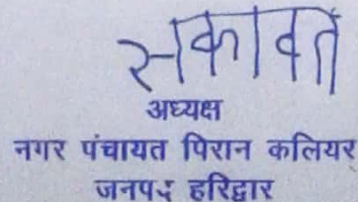 सकावत
अध्यक्ष
नगर पंचायत पिरान कलियर
जनपद हरिद्वार